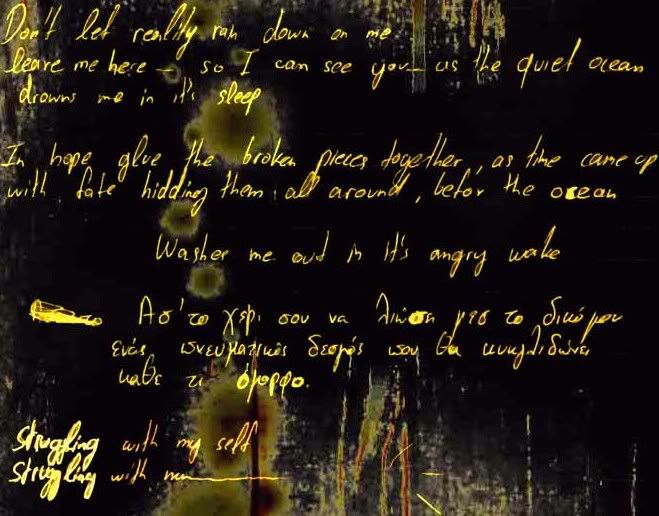 Don't let reality rain down on me
leave me here — so I can see you — as the quiet ocean
drowns me in it's sleep
In hope glue the broken pieces together, as time came up
with fate hidding them all around, befor the ocean
Washes me out in it's angry wake
Ασ' το χέρι σου να λιώσει μεσ το δικό μου
ενας πνευματικός δεσμός που θα
κάθε τι όμορφο.
Struggling with my self
Struggling with